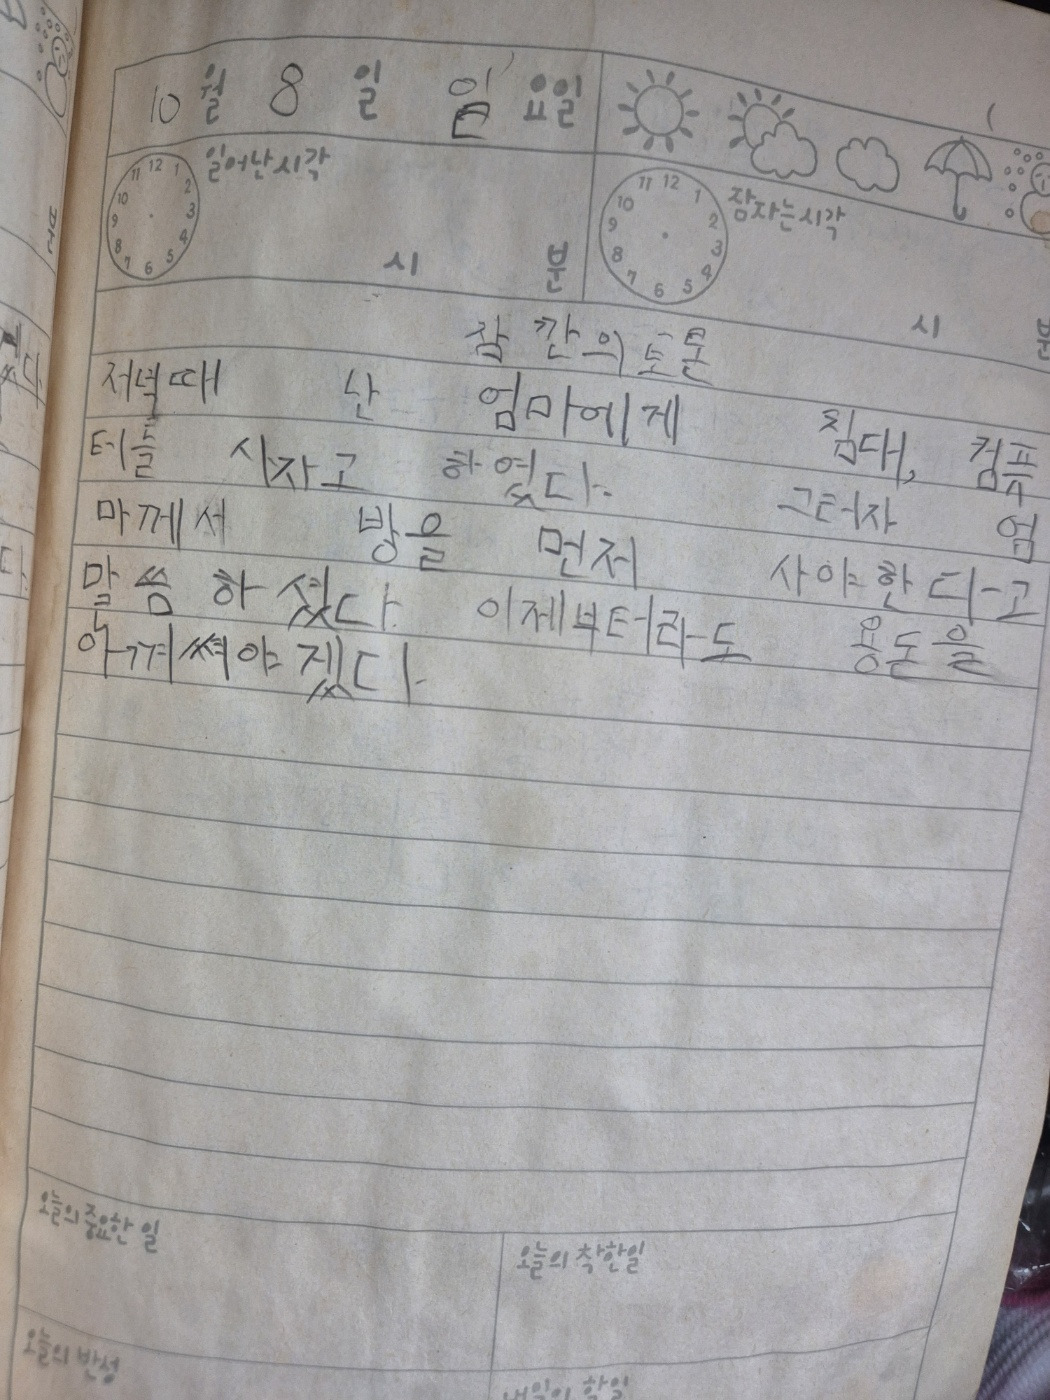 10월 8일 일요일
일어난시각
11 12 1
10 2
9 3
8 4
7 6 5
시 분
잠자는시각
11 12 1
10 2
9 3
8 4
7 6 5
시 분
잠깐의 토론
저녁때 난 엄마에게 침대, 컴퓨
터를 사자고 하였다. 그터자 엄
마께서 방을 먼저 사야한다고
말씀하셨다. 이제부터라도 용돈을
아껴써야겠다.
오늘의 중요한 일
오늘의 착한일
오늘의 반성
내일의 할일